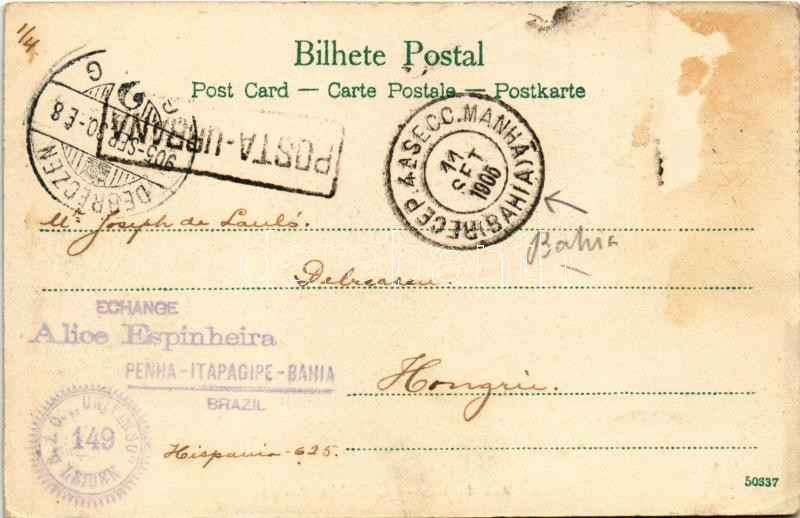 1/4
Bilhete Postal
Post Card — Carte Postale — Postkarte
DEBRECZEN
905 SEP 30
POSTA-URBANA
4A SECC. MANHÃ (BAHIA) RECEP
11
SET
1905
Bahia
Mr Joseph de Lauló.
Debreczen.
ECHANGE
Alice Espinheira
PENHA-ITAPAGIPE-BAHIA
BRAZIL
Hongrie.
"UNIVERSUM"
149
LEIDEN
Hispania - 625.
50337